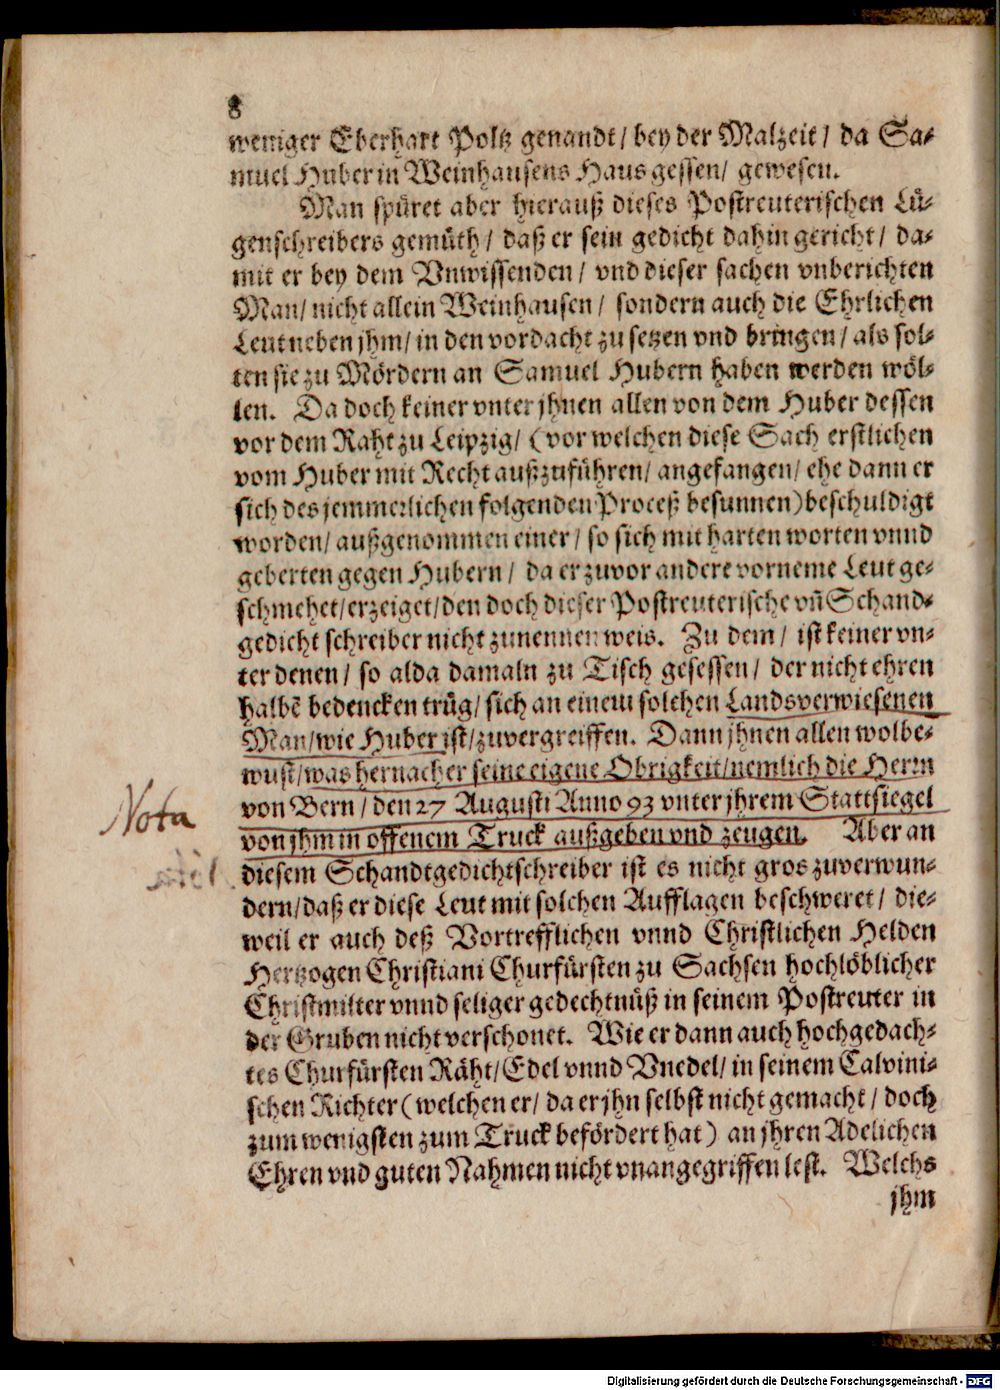 8
weniger Eberhart Poltz genandt/ bey der Malzeit/ da Sa-
muel Huber in Weinhausens Haus gessen/ gewesen.
Man spüret aber hierauß dieses Postreuterischen Lü-
genschreibers gemüth/ daß er sein gedicht dahin gericht/ da-
mit er bey dem Vnwissenden/ vnd dieser sachen vnberichten
Man/ nicht allein Weinhausen/ sondern auch die Ehrlichen
Leut neben jhm/ in den vordacht zu setzen vnd bringen/ als sol-
ten sie zu Mördern an Samuel Hubern haben werden wöl-
len. Da doch keiner vnter jhnen allen von dem Huber dessen
vor dem Raht zu Leipzig/ (vor welchen diese Sach erstlichen
vom Huber mit Recht außzuführen/ angefangen/ ehe dann er
sich des jemmerlichen folgenden Proceß besunnen) beschuldigt
worden/ außgenommen einer/ so sich mit harten worten vnnd
geberten gegen Hubern/ da er zuvor andere vorneme Leut ge-
schmehet/ erzeiget/ den doch dieser Postreuterische vñ Schand-
gedicht schreiber nicht zunennen weis. Zu dem/ ist keiner vn-
ter denen/ so alda damaln zu Tisch gesessen/ der nicht ehren
halbē bedencken trüg/ sich an einem solchen Landsverwiesenen
Man/ wie Huber ist/ zuvergreiffen. Dann jhnen allen wolbe-
wust/ was hernacher seine eigene Obrigkeit/ nemlich die Herrn
von Bern/ den 27 Augusti Anno 93 vnter jhrem Stattsiegel
von jhm in offenem Truck außgeben vnd zeugen. Aber an
Nota
diesem Schandtgedichtschreiber ist es nicht gros zuverwun-
dern/ daß er diese Leut mit solchen Aufflagen beschweret/ die-
weil er auch deß Vortrefflichen vnnd Christlichen Helden
Hertzogen Christiani Churfürsten zu Sachsen hochlöblicher
Christmilter vnnd seliger gedechtnüß in seinem Postreuter in
der Gruben nicht verschonet. Wie er dann auch hochgedach-
tes Churfürsten Räht/ Edel vnnd Vnedel/ in seinem Calvini-
schen Richter (welchen er/ da er jhn selbst nicht gemacht/ doch
zum wenigsten zum Truck befördert hat) an jhren Adelichen
Ehren vnd guten Nahmen nicht vnangegriffen lest. Welchs
jhm
Digitalisierung gefördert durch die Deutsche Forschungsgemeinschaft - DFG